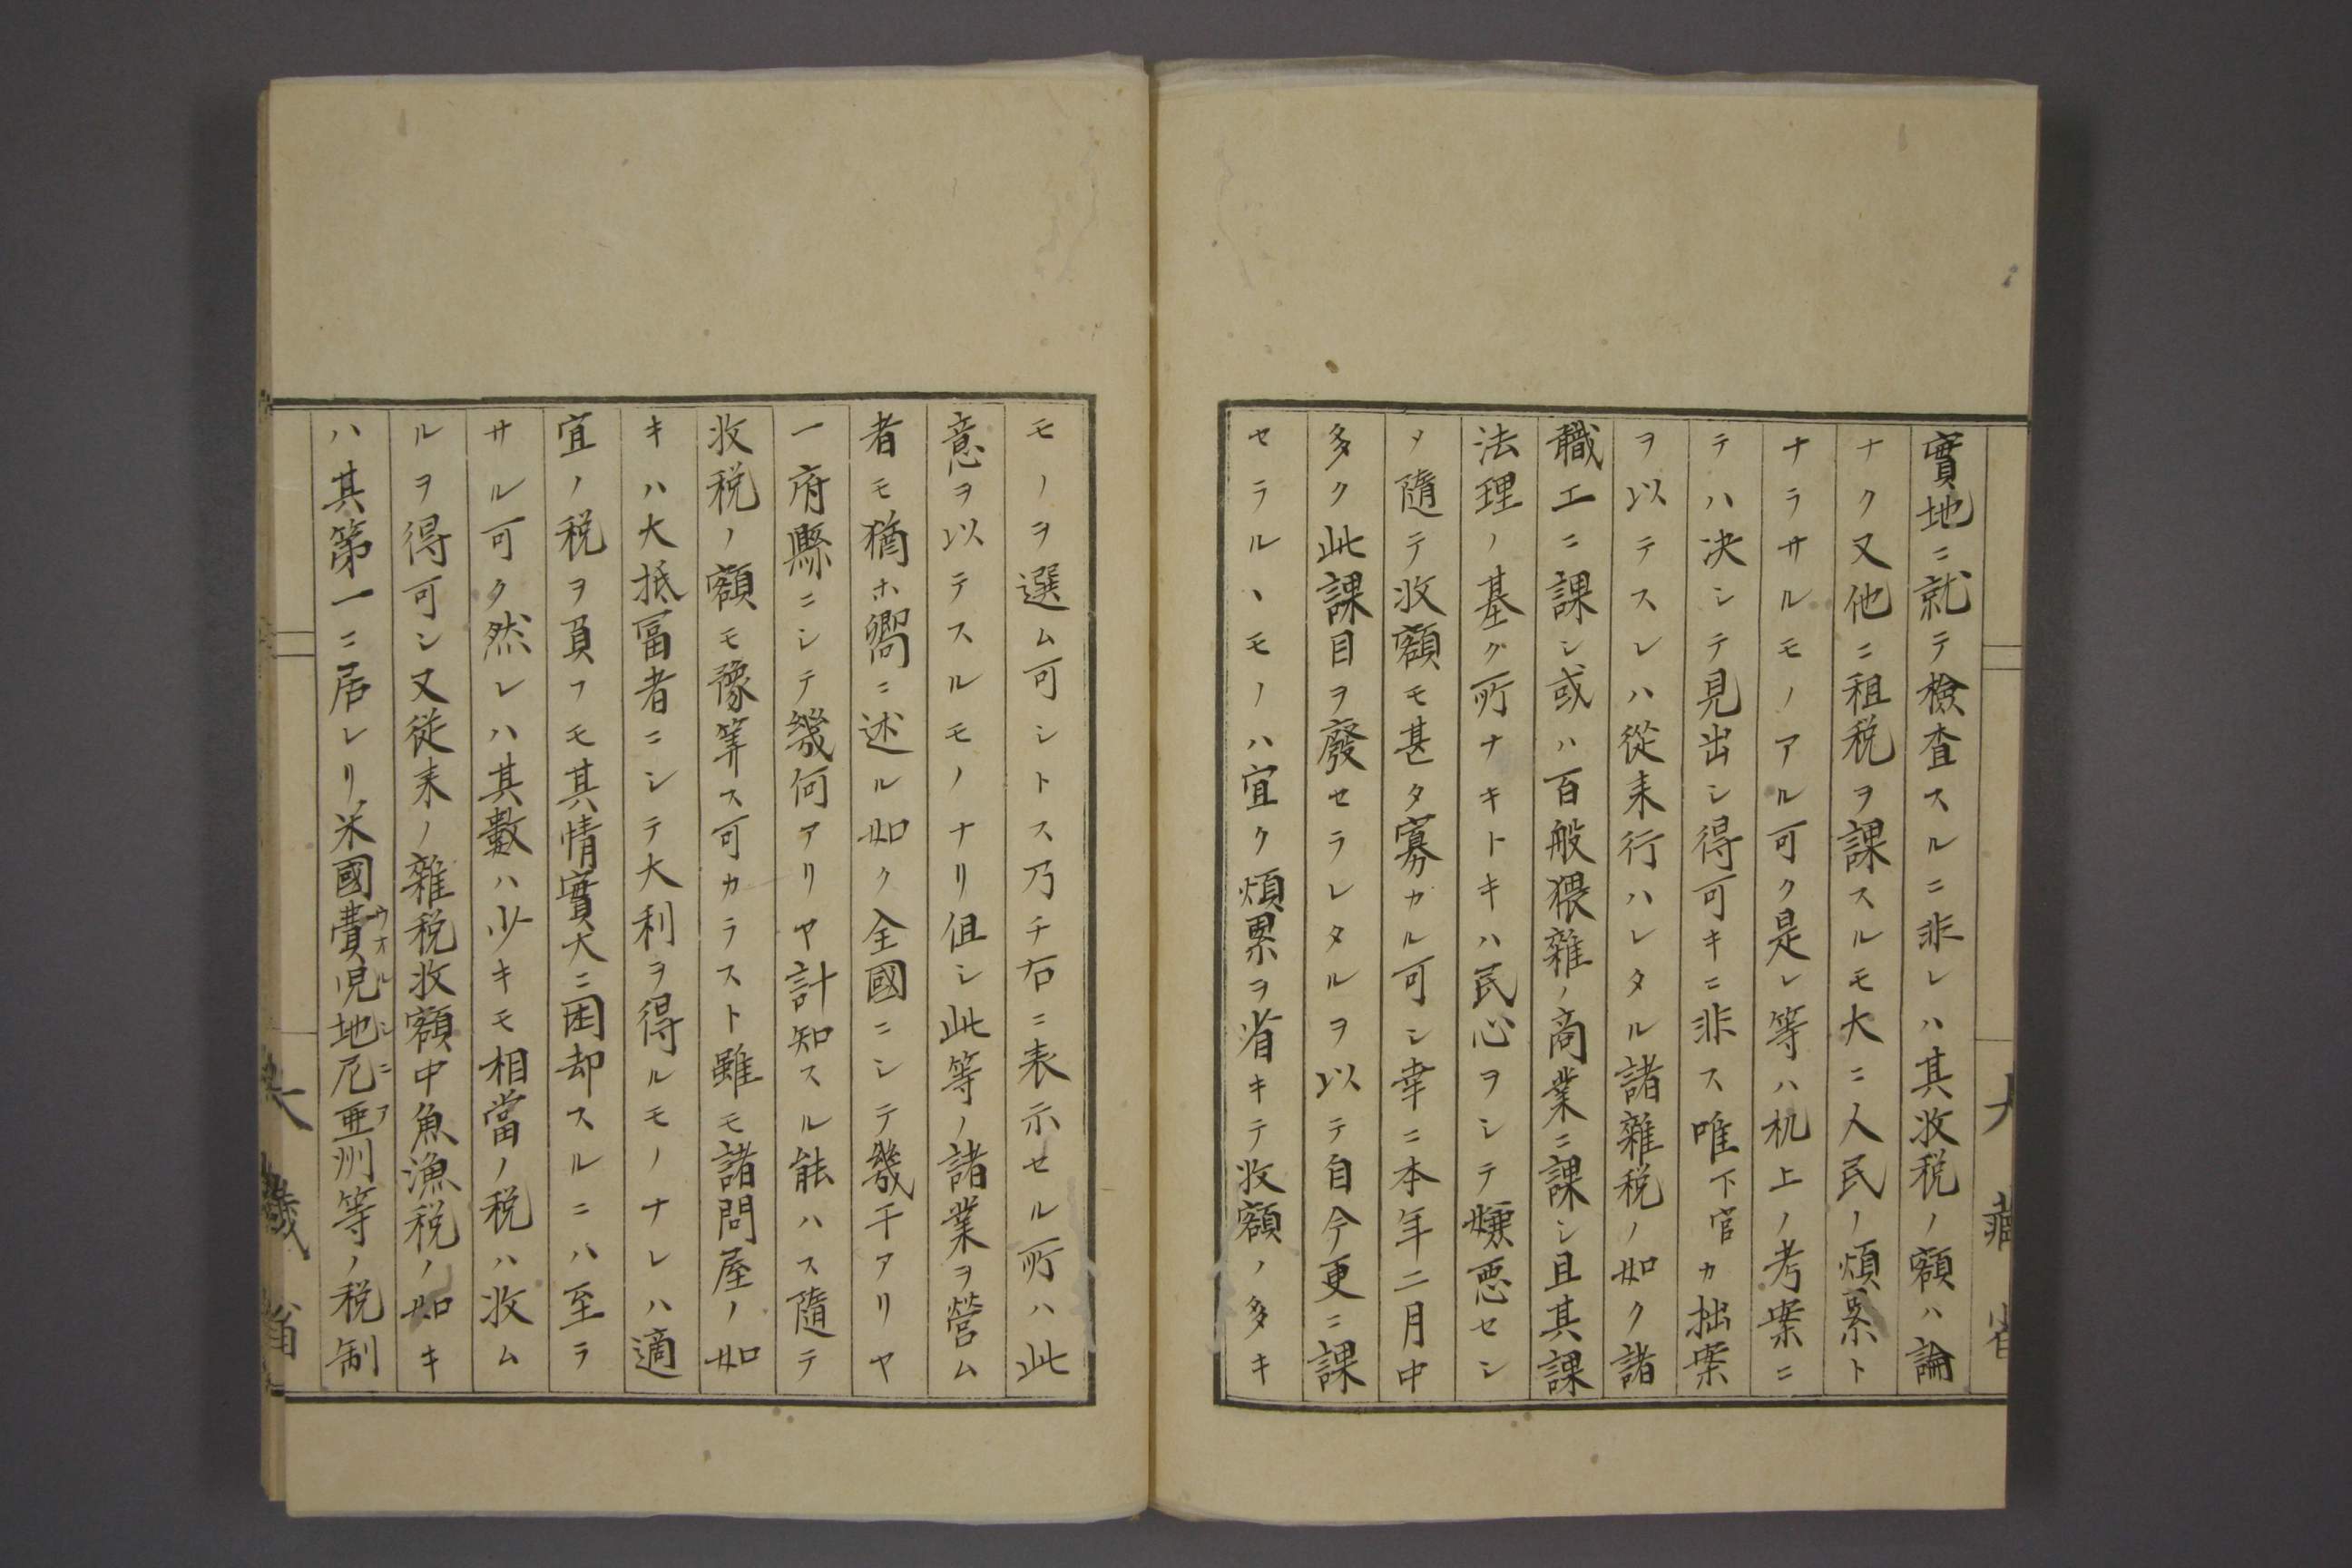 實地ニ就テ檢査スルニ非レハ其收税ノ額ハ論
ナク又他ニ租税ヲ課スルモ大ニ人民ノ煩累ト
ナラサルモノアル可ク是レ等ハ机上ノ考案ニ
テハ决シテ見出シ得可キニ非ス唯下官カ拙案
ヲ以テスレハ從来行ハレタル諸雜税ノ如ク諸
職工ニ課シ或ハ百般猥雜ノ商業ニ課シ且其課
法理ノ基ク所ナキトキハ民心ヲシテ嫌悪セシ
メ隨テ收額モ甚タ寡カル可シ幸ニ本年二月中
多ク此課目ヲ廢セラレタルヲ以テ自今更ニ課
セラルヽモノハ宜ク煩累ヲ省キテ收額ノ多キ
モノヲ選ム可シトス乃チ右ニ表示セル所ハ此
意ヲ以テスルモノナリ但シ此等ノ諸業ヲ營ム
者モ猶ホ嚮ニ述ル如ク全國ニシテ幾千アリヤ
一府縣ニシテ幾何アリヤ計知スル能ハス隨テ
收税ノ額モ豫筭ス可カラスト雖モ諸問屋ノ如
キハ大抵冨者ニシテ大利ヲ得ルモノナレハ適
宜ノ税ヲ負フモ其情實大ニ困却スルニハ至ラ
サル可ク然レハ其數ハ少キモ相當ノ税ハ收ム
ルヲ得可シ又従来ノ雜税收額中魚漁税ノ如キ
ハ其第一ニ居レリ米國費児地尼亜州等ノ税制
ウオルジニア
大藏省